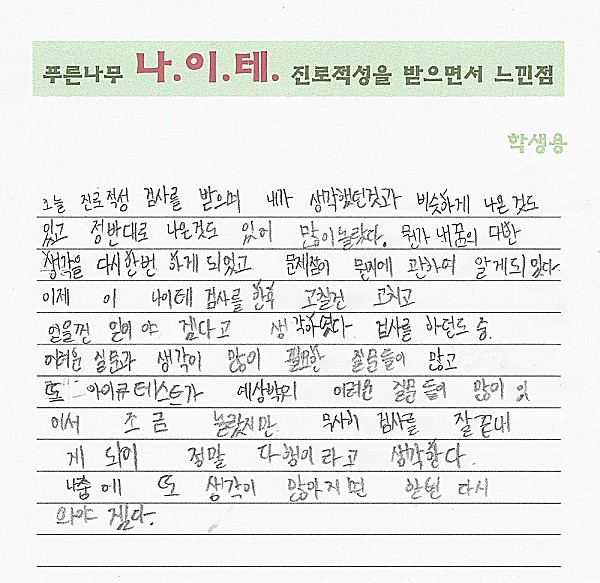 푸른나무 나.이.테. 진로적성을 받으면서 느낀점
학생용
오늘 진로적성 검사를 받으며 내가 생각했던것과 비슷하게 나온것도
있고 정반대로 나온것도 있어 많이놀랐다. 뭔가 내꿈의 대한
생각을 다시한번 하게 되었고 문제점이 뭔지에 관하여 알게되있다.
이제 이 나이테 검사를 한후 고칠건 고치고
일이야 겠다고 생각하였다. 검사를 하던드 중.
어려운 질문과 생각이 많이 필요한 질문들이 많고
또 아이큐테스트가 예상밖의 어려운 질문들이 많이 있
어서 조금 놀랐지만 무사히 검사를 잘끝내
게 되이 정말 다행이라고 생각한다.
나중에 또 생각이 많아지면 한번 다시
와야 겠다.